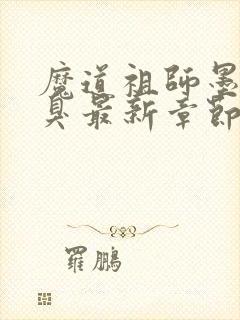 魔道祖師墨
臭最新章節
羅鵬